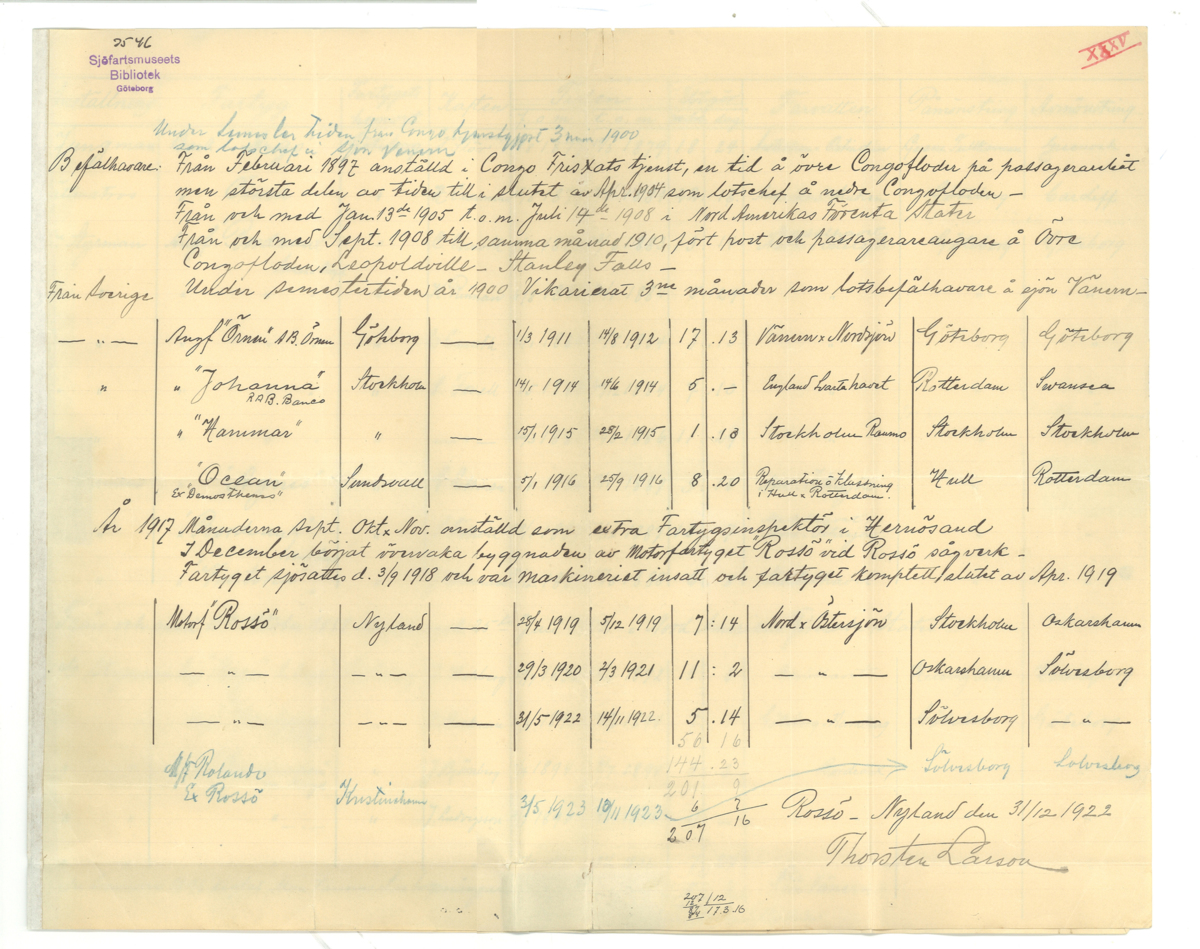 2546
Sjöfartsmuseets
Bibliotek
Göteborg
XXXV
Under Semester tiden från Congo tjenstgjort 3 mån 1900
som lotschef i sjön Vänern
Befälhavare: Från Februari 1897 anställd i Congo Fristats tjenst, en tid å övre Congofloden på passagerarebåt
men största delen av tiden till i slutet av Apr. 1904 som lotschef å nedre Congofloden –
Från och med Jan. 13de 1905 t.o.m. Juli 14de 1908 i Nord Amerikas Förenta Stater
Från och med Sept. 1908 till samma månad 1910, fört post och passagerareångare å Övre
Congofloden, Leopoldville – Stanley Falls –
Från Sverige Under semestertiden år 1900 Vikarierat 3ne månader som lotsbefälhavare å sjön Vänern –
— „ — Angf "Örnen" AB. Örnen Götborg — 1/3 1911 14/8 1912 17 . 13 Vänern x Nordsjön Göteborg Göteborg
„ „ "Johanna" Stockholm — 14/1 1914 14/6 1914 5 . – England Svartahavet Rotterdam Swansea
RAB. Banco
„ "Hammar" „ — 15/1 1915 28/2 1915 1 . 13 Stockholm Raumo Stockholm Stockholm
"Ocean" Sundsvall — 5/1 1916 25/9 1916 8 . 20 Reparation o Klassning Hull Rotterdam
Ex "Demosthenes" i Hull x Rotterdam.
År 1917 Månaderna Sept. Okt x Nov. anställd som extra Fartygsinspektör i Hernösand
I December börjat övervaka byggnaden av Motorfartyget "Rossö" vid Rossö sågverk –
Fartyget sjösattes d. 3/9 1918 och var maskineriet insatt och fartyget komplett i slutet av Apr. 1919
Motorf "Rossö" Nyland — 28/4 1919 5/12 1919 7 : 14 Nord x Östersjön Stockholm Oskarshamn
— „ — — „ — — 29/3 1920 2/3 1921 11 : 2 — „ — Oskarshamn Sölvesborg
— „ — — „ — — 31/5 1922 14/11 1922. 5 . 14 — „ — Sölvesborg — „ —
56 16
144 . 23
201 9
M/f Rolando Sölvesborg Sölvesborg
Ex Rossö Kristinehamn 3/5 1923 10/11 1923 6 7
207 16
Rossö – Nyland den 31/12 1922
Thorsten Larson
207 / 12
17.3.16